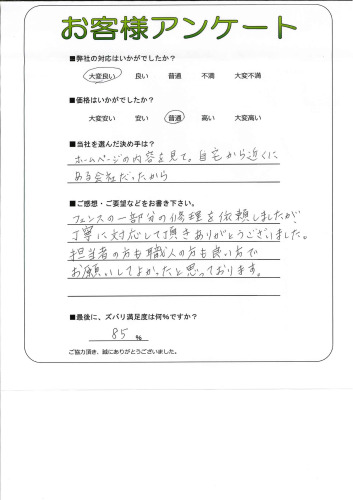 お客様アンケート
■弊社の対応はいかがでしたか？
大変良い 良い 普通 不満 大変不満
■価格はいかがでしたか？
大変安い 安い 普通 高い 大変高い
■当社を選んだ決め手は？
ホームページの内容を見て。自宅から近くに
ある会社だったから
■ご感想・ご要望などをお書き下さい。
フェンスの一部分の修理を依頼しましたが
丁寧に対応して頂きありがとうございました。
担当者の方も職人の方も良い方で
お願いしてよかったと思っております。
■最後に、ズバリ満足度は何%ですか？
85 %
ご協力頂き、誠にありがとうございました。